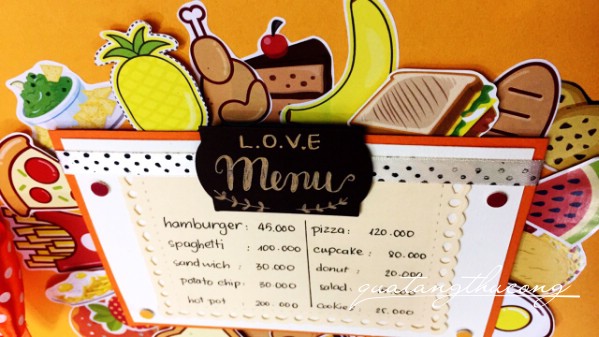 L.O.V.E
Menu
hamburger : 45.000
spaghetti : 100.000
sandwich : 30.000
potato chip: 30.000
hot pot 200.000
pizza: 120.000
cupcake : 80.000
donut : 20.000
salad
cookies: 85.000
quatangthucong